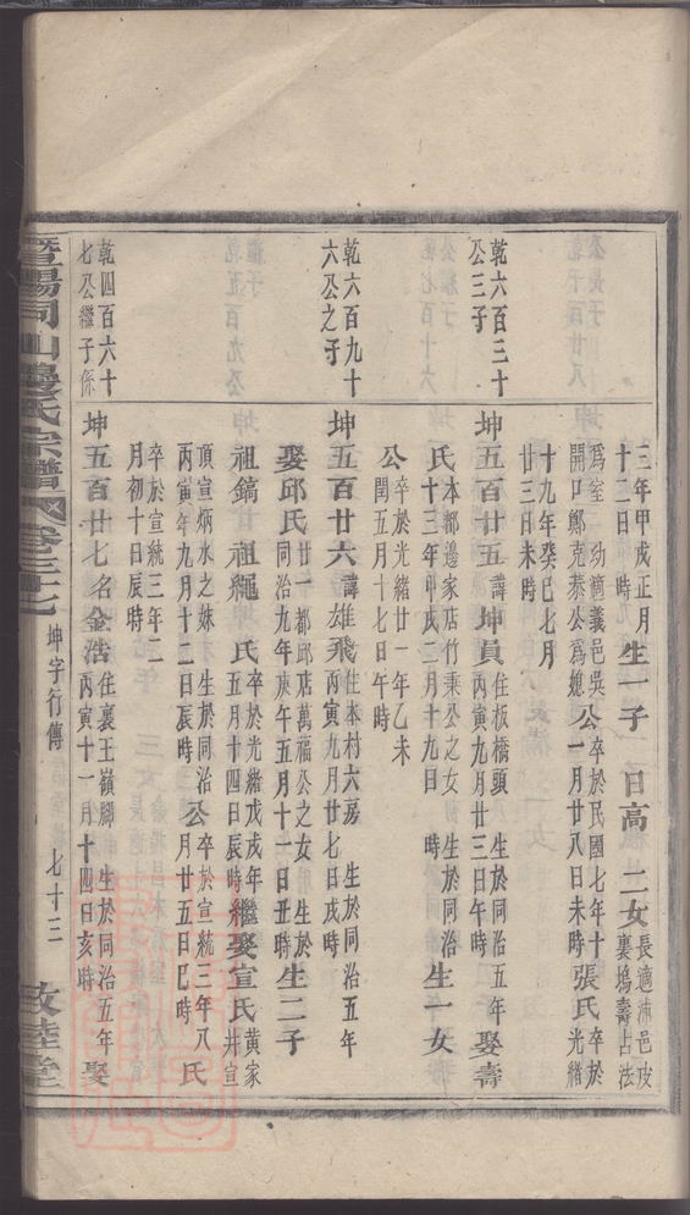 三年甲戌正月
十二日　時
生一子　日高　二女
長適沛邑皮
裏塢壽占法
爲室　幼適義邑吳
開口鄭克泰公爲媳
公
卒於民國七年十
一月廿八日未時
張氏
卒於
光緒
十九年癸巳七月
廿三日未時
乾六百三十
公三子
坤五百廿五諱坤員
住板橋頭　生於同治五年
丙寅九月廿三日午時
娶壽
氏
本都邊家店竹秉公之女　生於同治
十三年甲戌二月十九日　時
生一女
公
卒於光緒廿一年乙未
閏五月十七日午時
乾六百九十
六公之子
坤五百廿六諱雄飛
住本村六房　生於同治五年
丙寅九月廿七日戌時
娶邱氏
廿一都邱店萬福公之女　生於
同治九年庚午五月十一日丑時
生二子
祖鎬　祖繩　氏
卒於光緒戊戌年
五月十四日辰時
繼娶宣氏
黃家
井宣
頂宣炳水之妹　生於同治
丙寅年九月十二日辰時
公
卒於宣統三年八
月廿五日巳時
氏
卒於宣統三年二
月初十日辰時
乾四百六十
七公繼子係
坤五百廿七名金浩
住裏王嶺腳　生於同治五年
丙寅十一月十四日亥時
娶
暨陽同山邊氏宗譜
卷三十七
坤字行傳
七十三
敦睦堂